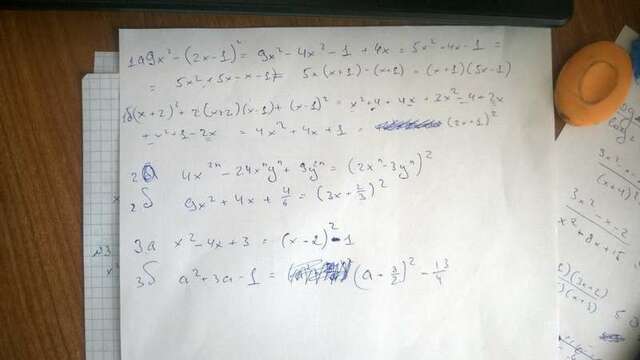 1а 9x² - (2x-1)² = 9x² - 4x² - 1 + 4x = 5x² + 4x - 1 =
= 5x² + 5x - x - 1 = 5x(x+1) - (x+1) = (x+1)(5x-1)
1б (x+2)² + 2(x+2)(x-1) + (x-1)² = x² + 4 + 4x + 2x² - 4 + 2x
+ x² + 1 - 2x = 4x² + 4x + 1 = (2x+1)²
2а 4x²ⁿ - 24xⁿyⁿ + 9y²ⁿ = (2xⁿ - 3yⁿ)²
2б 9x² + 4x + 4/6 = (3x + 2/3)²
3а x² - 4x + 3 = (x-2)² - 1
3б a² + 3a - 1 = (a + 3/2)² - 13/4
№3
x²
(x+4)²
3x² - x - 2
x² + 8x + 16